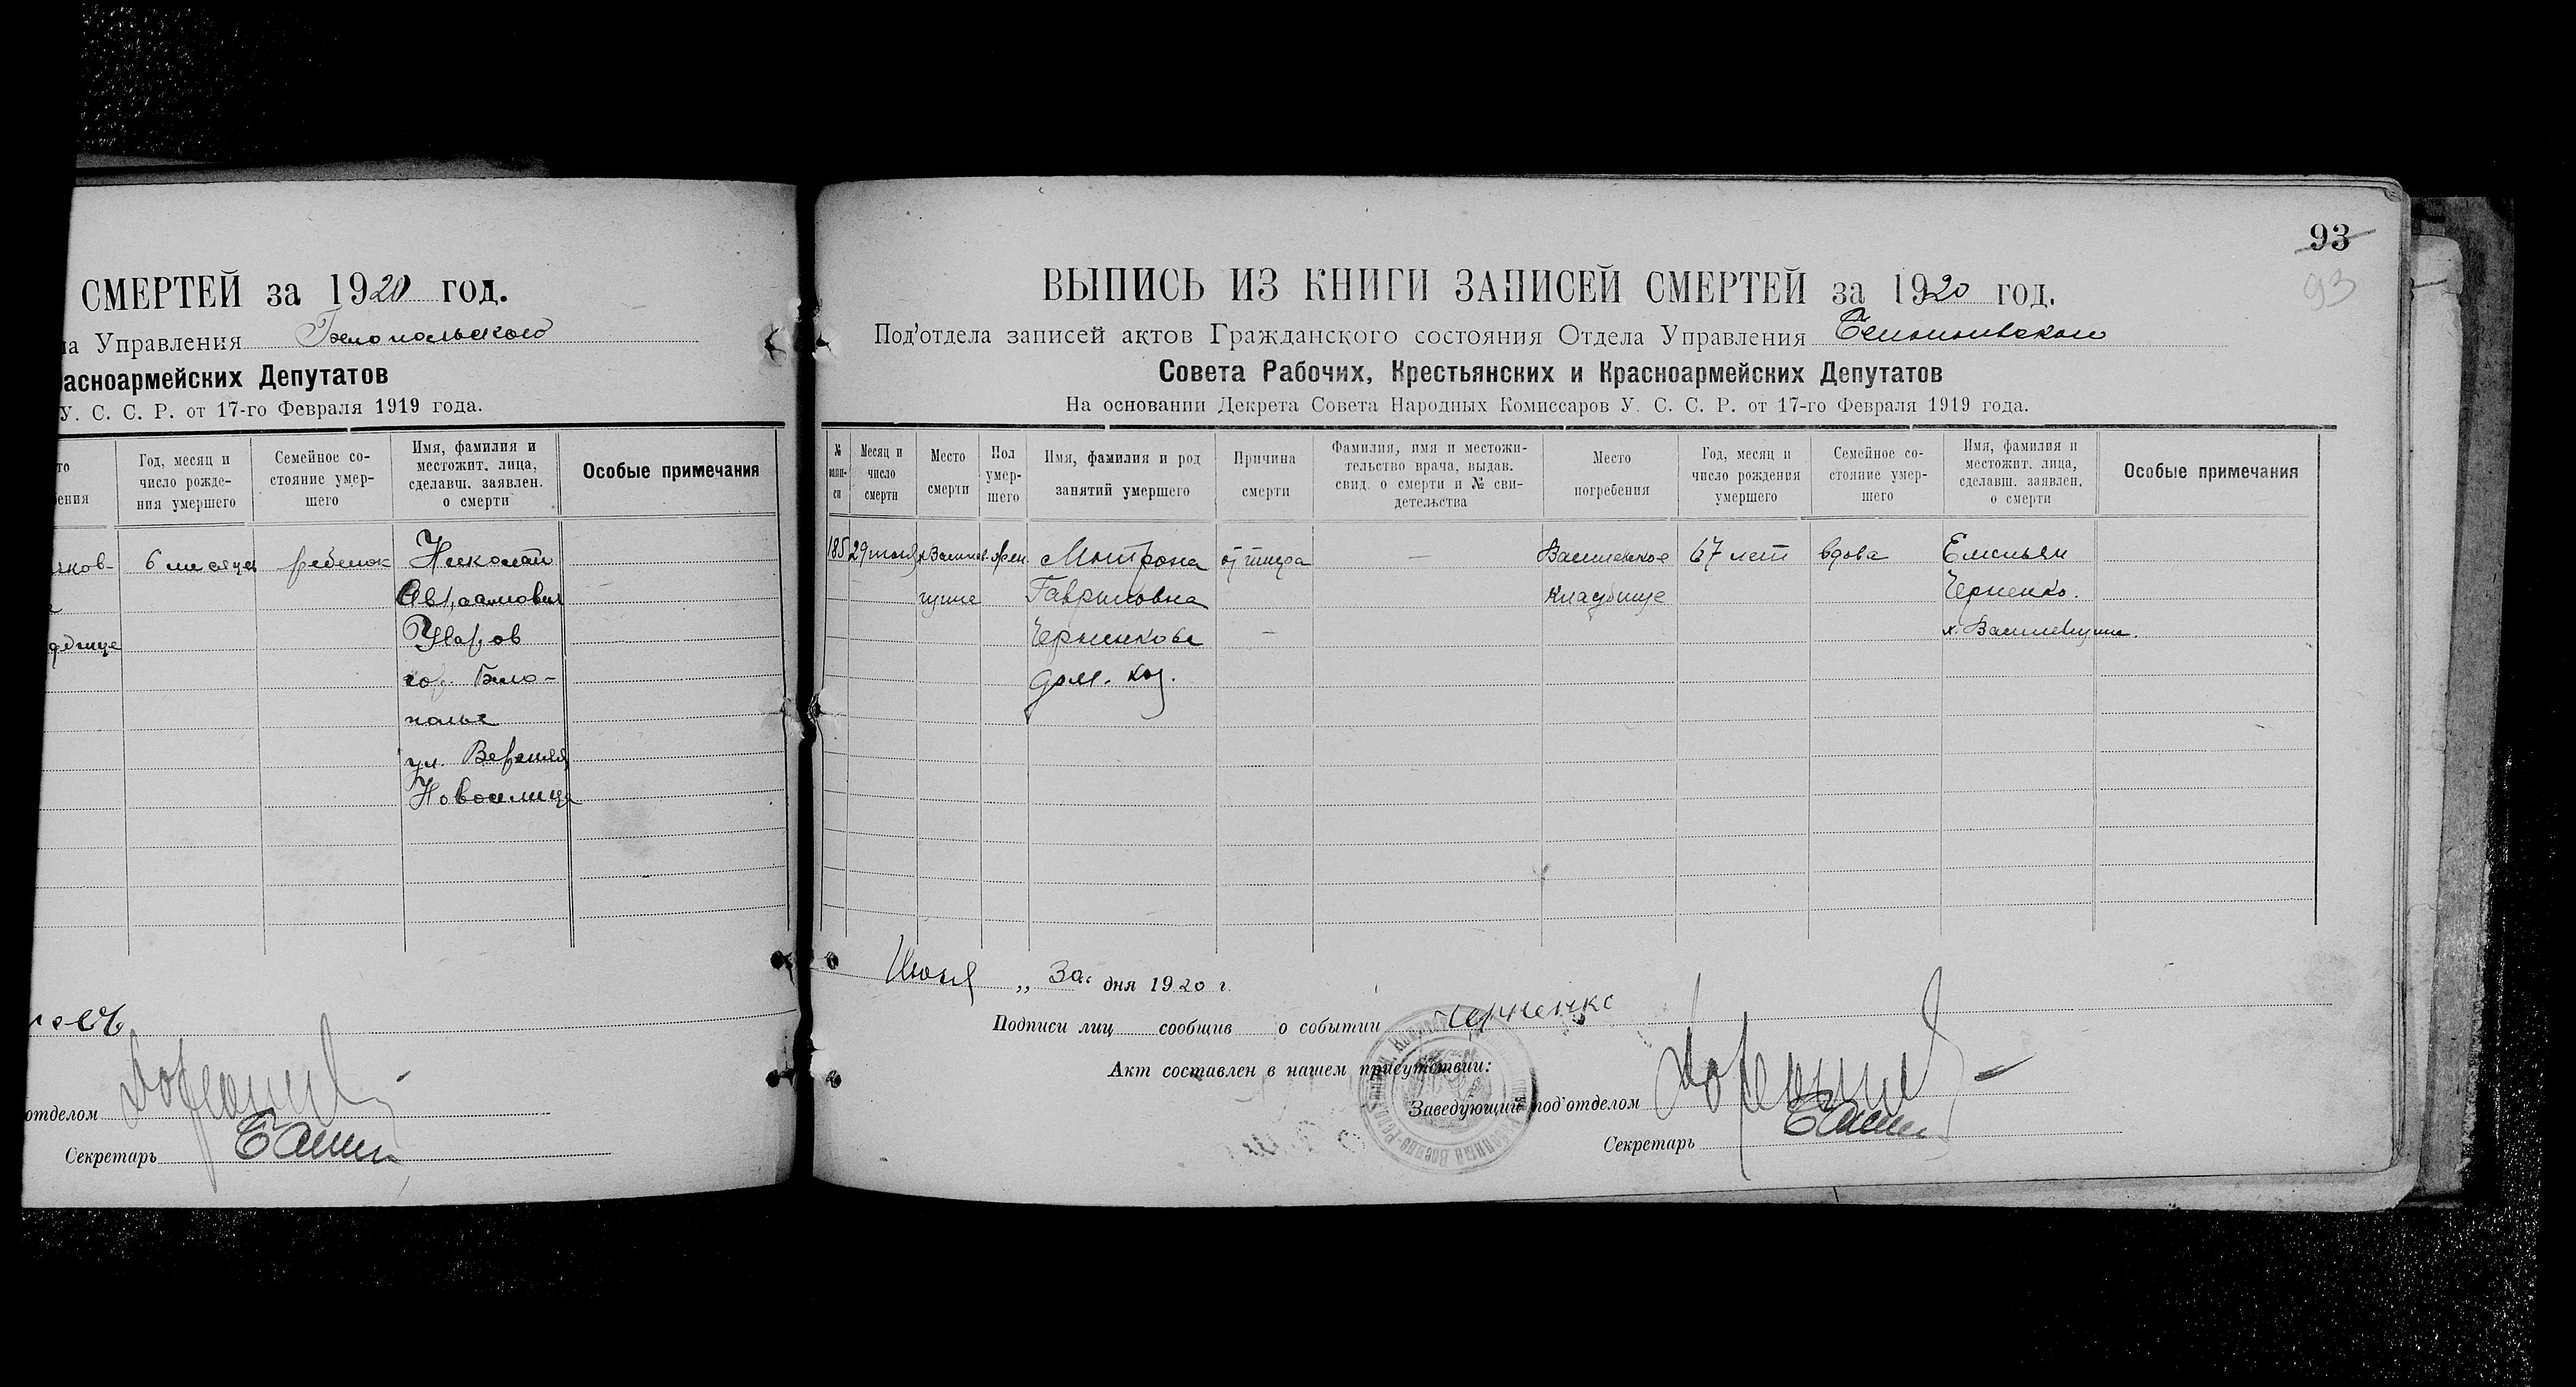 СМЕРТЕЙ за 1920 год.
на Управления Белопольского
расноармейских Депутатов
У. С. С. Р. от 17-го Февраля 1919 года.
то
ения
Год, месяц и
число рожде-
ния умершего
Семейное со-
стояние умер-
шего
Имя, фамилия и
местожит. лица,
сделавш. заявлен.
о смерти
Особые примечания
6 месяцев
ребенок
Николай
Авраамович
Уваров
гор. Бело-
полье
ул. Верхняя
Новоселица
отделом
Секретарь
93
93
ВЫПИСЬ ИЗ КНИГИ ЗАПИСЕЙ СМЕРТЕЙ за 1920 год.
Под'отдела записей актов Гражданского состояния Отдела Управления
Совета Рабочих, Крестьянских и Красноармейских Депутатов
На основании Декрета Совета Народных Комиссаров У. С. С. Р. от 17-го Февраля 1919 года.
№
запи-
си
Месяц и
число
смерти
Место
смерти
Пол
умер-
шего
Имя, фамилия и род
занятий умершего
Причина
смерти
Фамилия, имя и местожи-
тельство врача, выдав.
свид. о смерти и № сви-
детельства
Место
погребения
Год, месяц и
число рождения
умершего
Семейное со-
стояние умер-
шего
Имя, фамилия и
местожит. лица,
сделавш. заявлен.
о смерти
Особые примечания
185
29 июля
жен.
Мотрона
Гавриловна
Черненкова
дом. хоз.
от тифа
—
—
кладбище
67 лет
вдова
Емельян
Черненко.
Июля „ 30 " дня 1920 г.
Подписи лиц сообщив о событии Черненко
Акт составлен в нашем присутствии:
Заведующий под'отделом
Секретарь